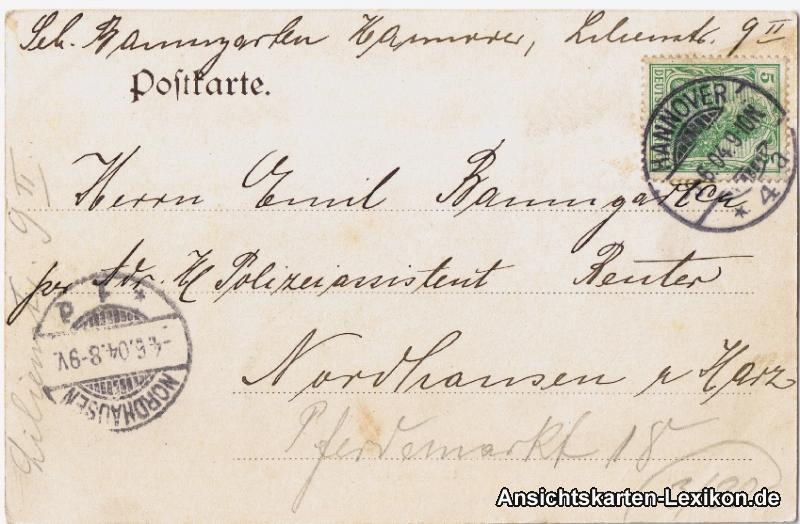 Seb. Baumgarten Hannover, Lilienstr. 9 II
Postkarte.
5
DEUT
HANNOVER
6.04.9-10N.
* 4a
Herrn Emil Baumgarten
per Adr. H Polizeiassistent Reuter
Nordhausen a Harz
Pferdemarkt 18
Lilienstr. 9 II
-4.6.04.8-9V.
NORDHAUSEN
Ansichtskarten-Lexikon.de